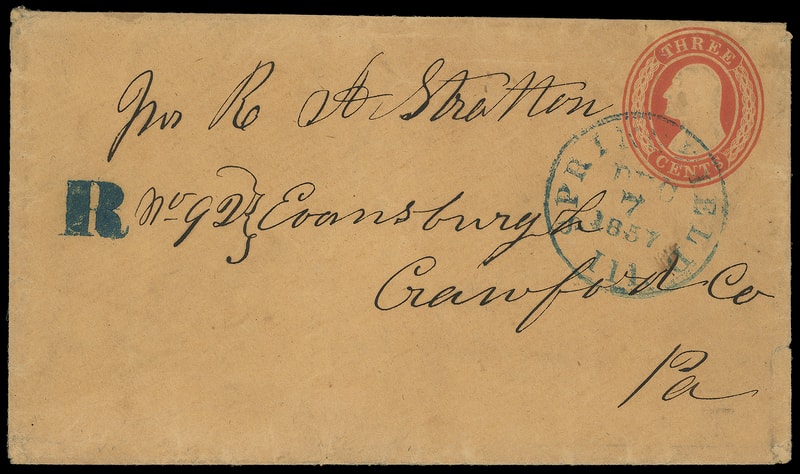 THREE
CENTS
R A Stratton
R No 92 } Evansburgh
Crawford Co
Pa
SPRINGFIELD
DEC
7
1857
Ill